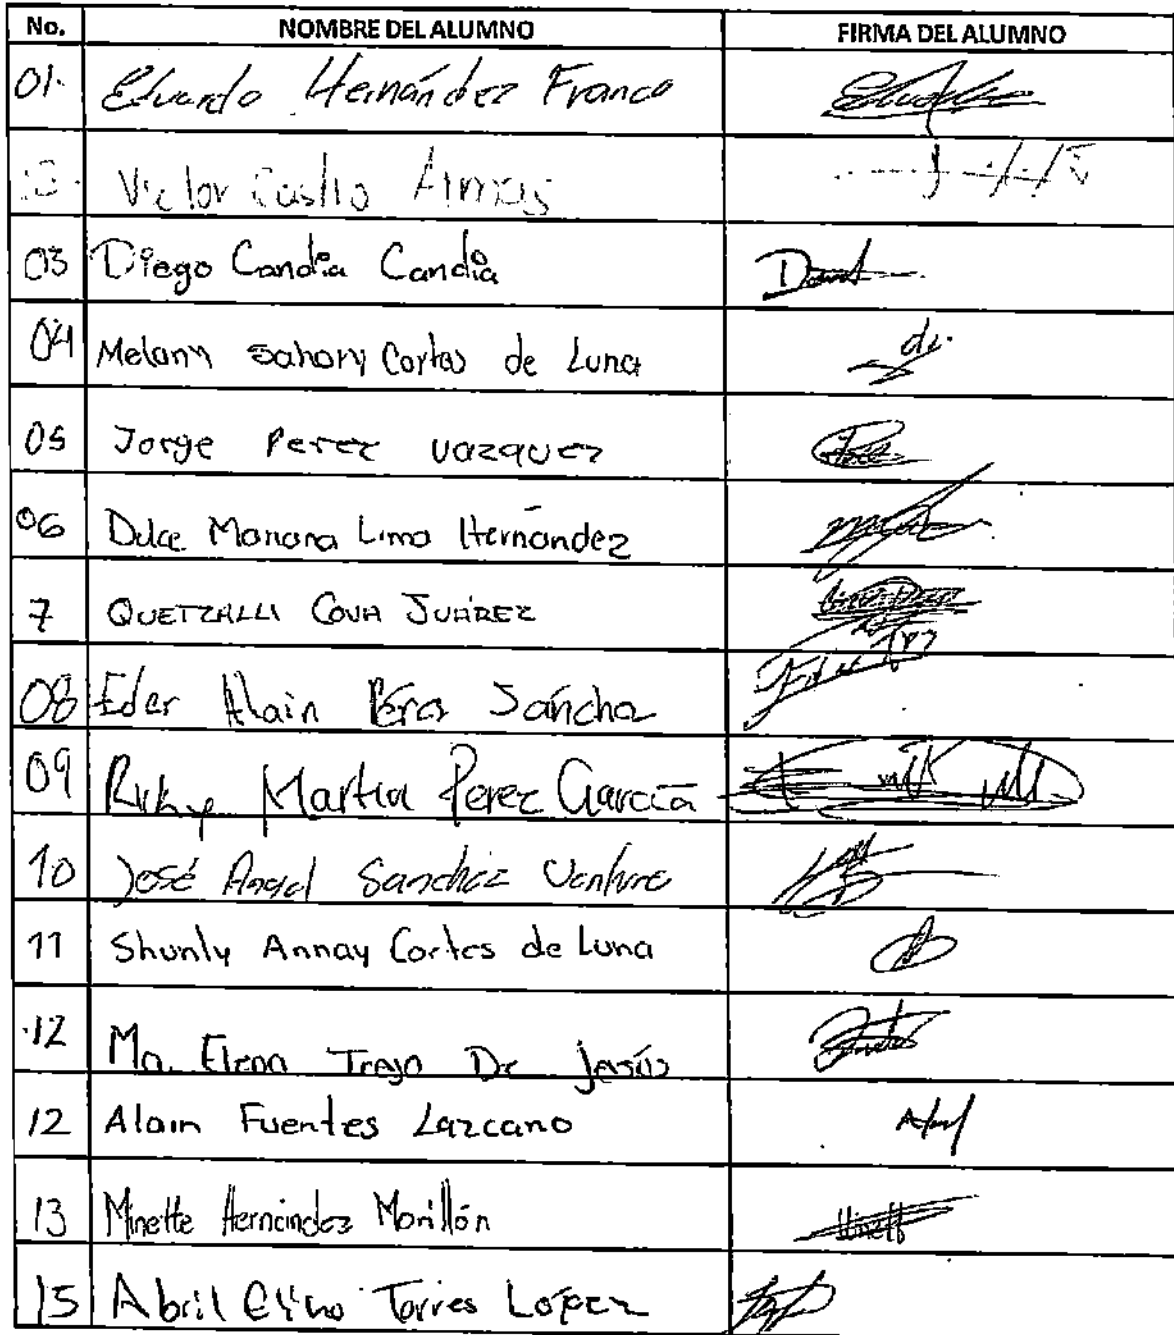 No. NOMBRE DEL ALUMNO FIRMA DEL ALUMNO
01. Eduardo Hernández Franco
Victor Castro
03 Diego Candia Candia
04 Melany Sahory Cortes de Luna di.
05 Jorge Perez vazquez
06 Dulce Mariana Lima Hernández
7 QUETZALLI COVA JUÁREZ
08 Eder Alain Pérez Sánchez
09 Martin Perez García
10 José Angel Sanchez Ventura
11 Shunly Annay Cortes de Luna
12 Ma. Elena Trejo De Jesús
12 Alain Fuentes Lazcano
13 Minette Hernández Morillón Minett
15 Abril Torres López